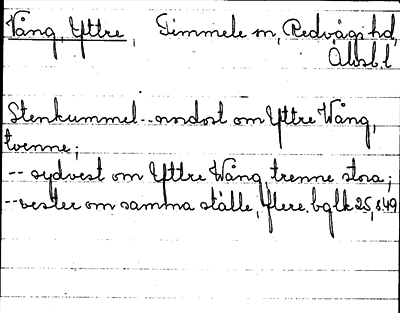 Vång, Yttre, Timmele sn, Redvägs hd,
Älvsb. l
Stenkummel -- nordost om Yttre Wång,
tvenne;
-- sydvest om Yttre Wång, trenne stora;
-- vester om samma ställe, flere. bglk 25, s 49